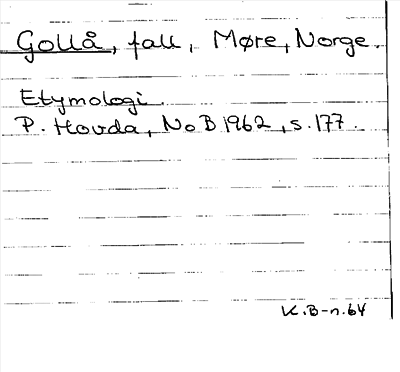 Gollå, fall, Møre, Norge.
Etymologi.
P. Hovda, NoB 1962, s. 177.
K.B-n. 64